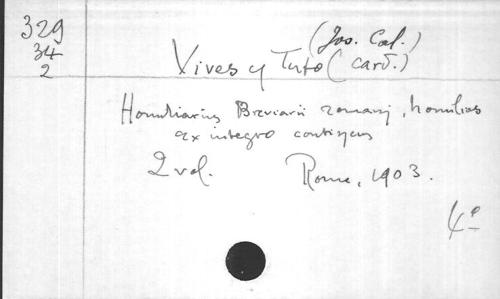 329
34
2
(Jos. Cal.)
Vives y Tuto (card.)
Homiliarius Breviarii romani, homilias
ex integro continens
2 vol. Rome, 1903.
4º